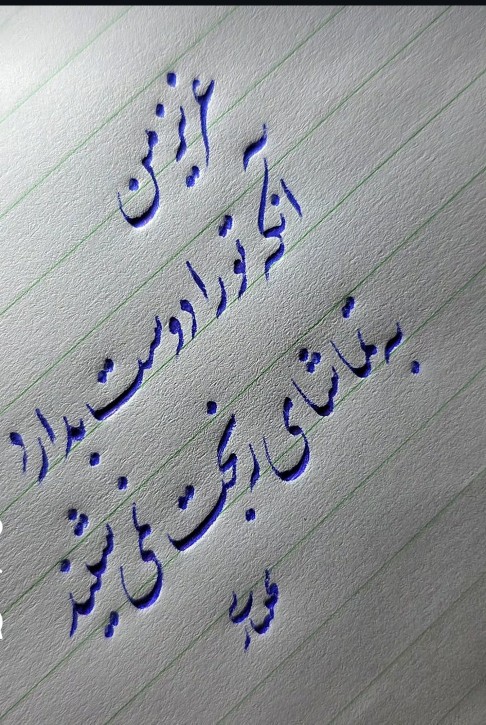 عزیز من
آنکه تو را دوست بدارد
به تماشای رنجت نمی نشیند